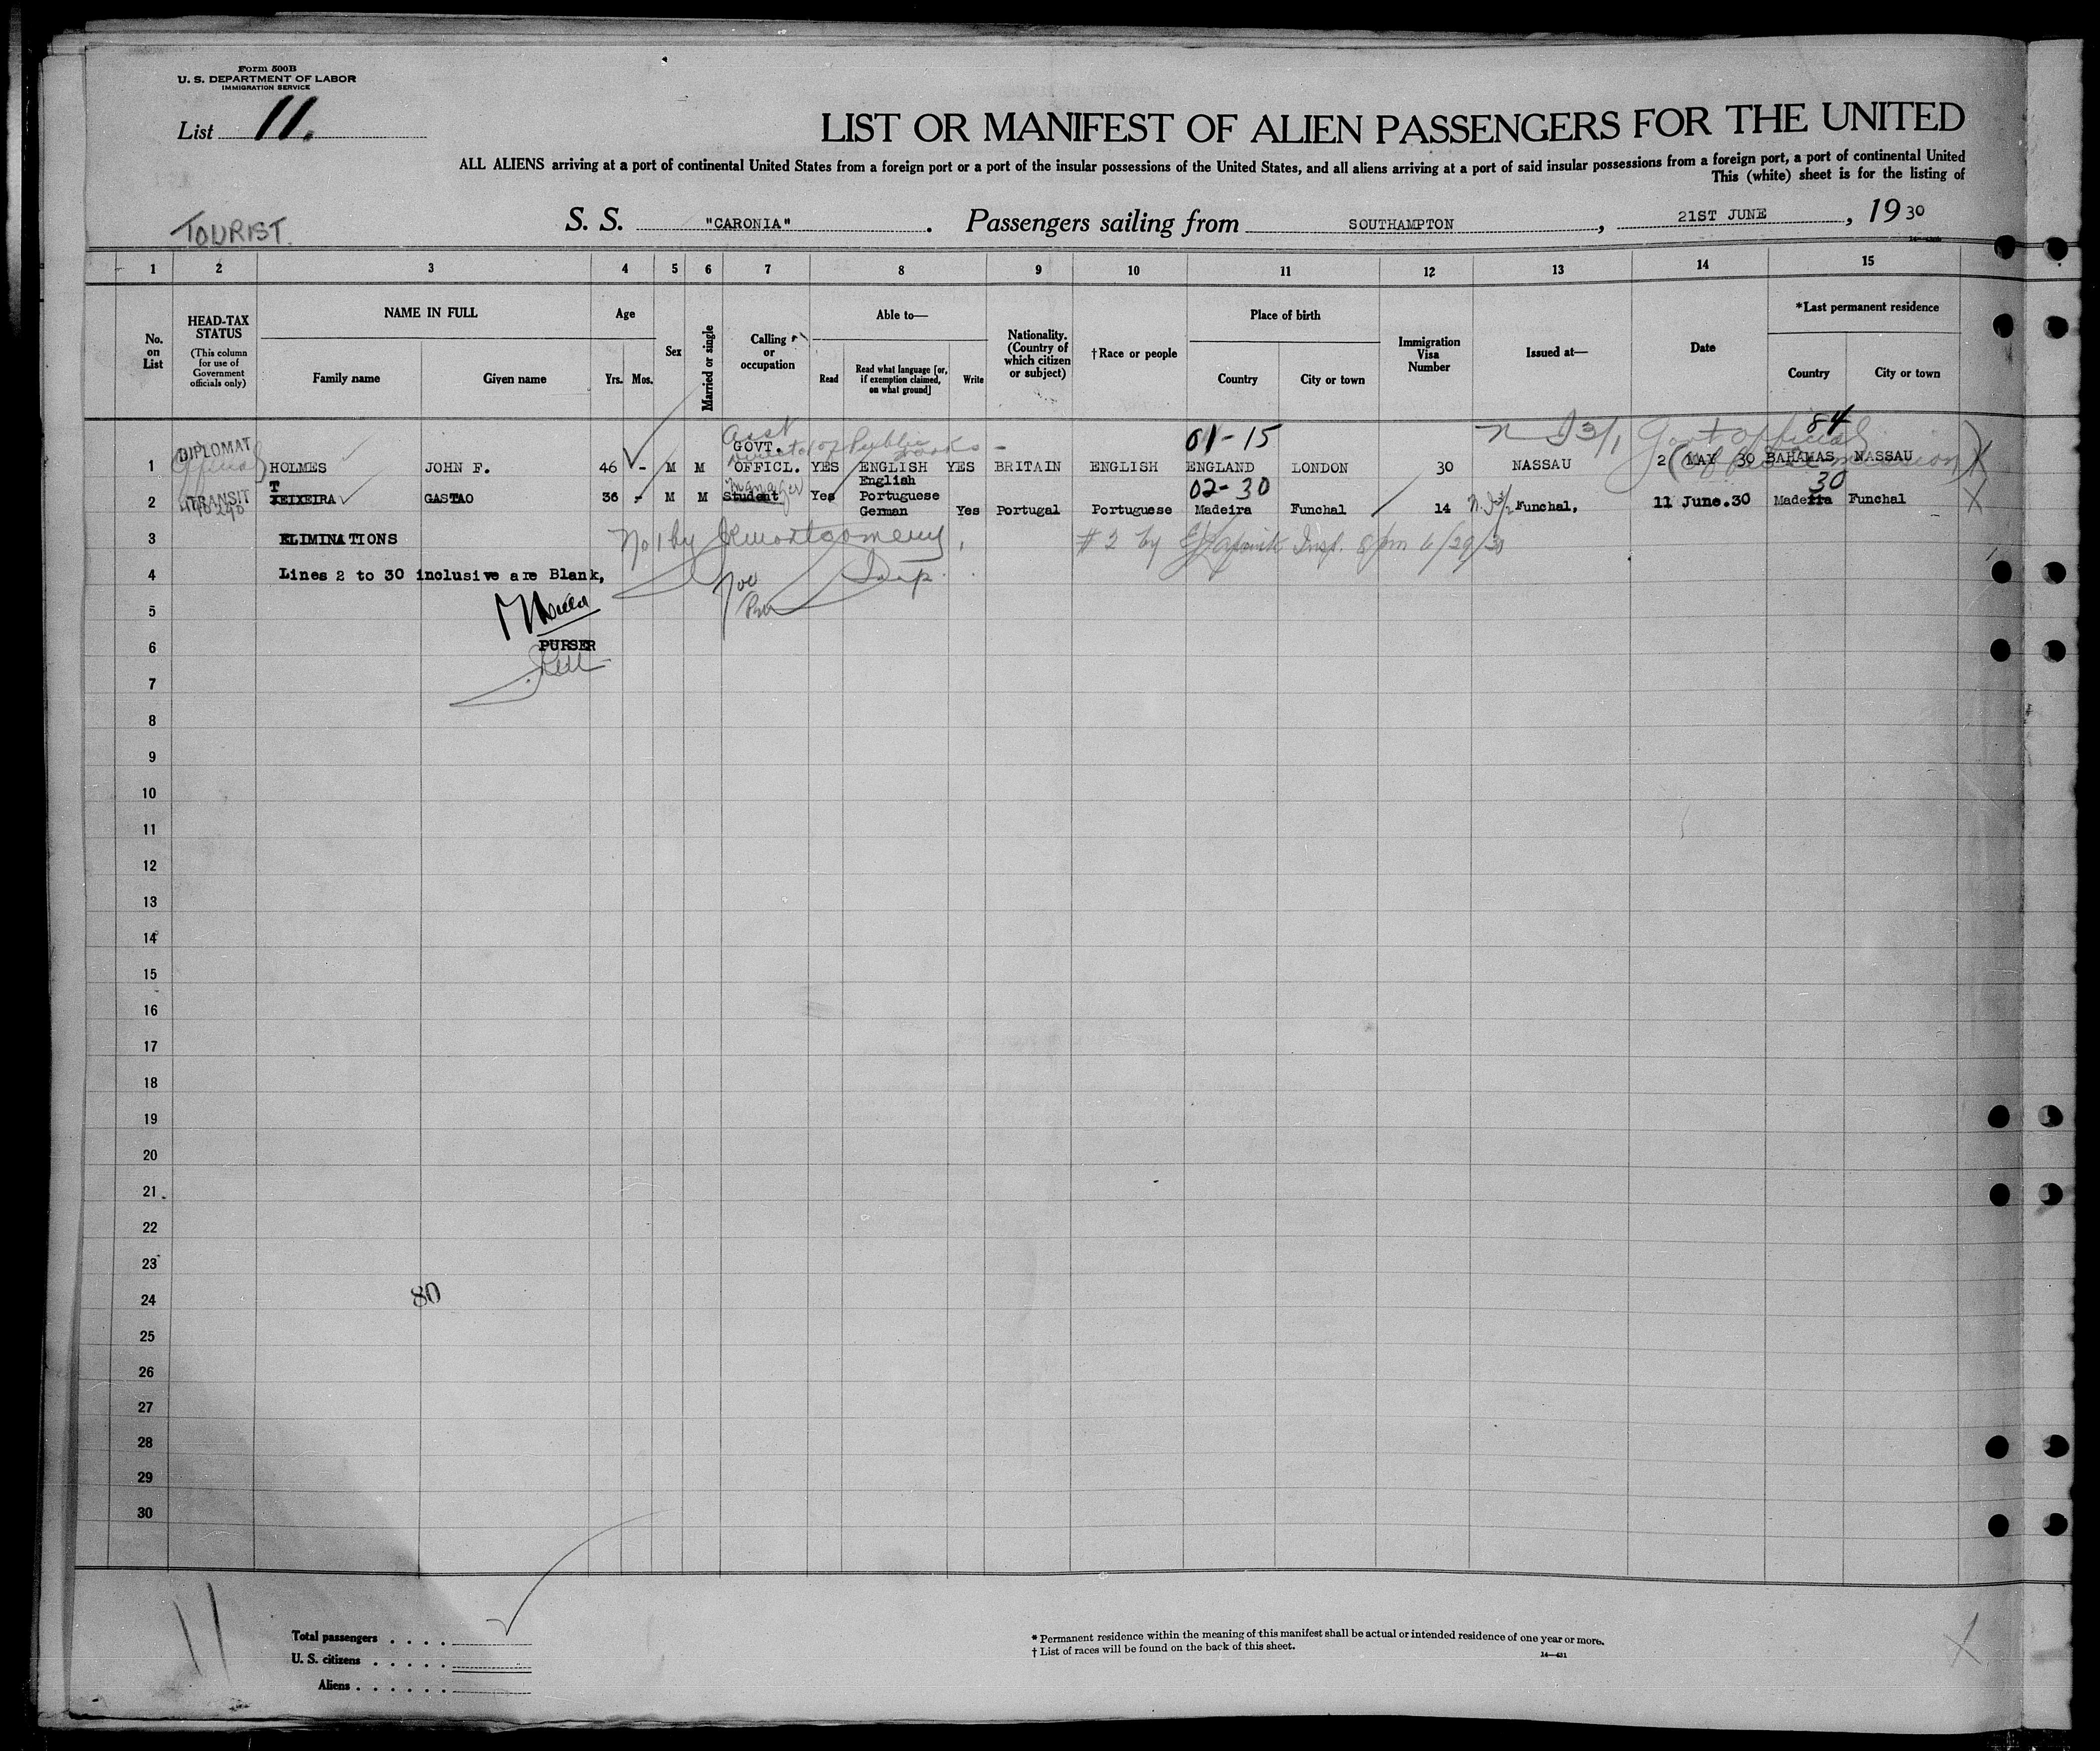 Form 500B
U. S. DEPARTMENT OF LABOR
IMMIGRATION SERVICE
List 11.
LIST OR MANIFEST OF ALIEN PASSENGERS FOR THE UNITED
ALL ALIENS arriving at a port of continental United States from a foreign port or a port of the insular possessions of the United States, and all aliens arriving at a port of said insular possessions from a foreign port, a port of continental United
This (white) sheet is for the listing of
TOURIST. S. S. "CARONIA". Passengers sailing from SOUTHAMPTON, 21ST JUNE, 1930
1 2 3 4 5 6 7 8 9 10 11 12 13 14 15
No. on List
HEAD-TAX STATUS
(This column for use of Government officials only)
NAME IN FULL
Family name
Given name
Age
Yrs. Mos.
Sex
Married or single
Calling or occupation
Able to—
Read
Read what language [or, if exemption claimed, on what ground]
Write
Nationality. (Country of which citizen or subject)
†Race or people
Place of birth
Country
City or town
Immigration Visa Number
Issued at—
Date
*Last permanent residence
Country
City or town
Asst Director of Public Works 01-15 84
Govt Official
1 DIPLOMAT Official HOLMES JOHN F. 46 - M M GOVT. OFFICL. YES ENGLISH YES BRITAIN ENGLISH ENGLAND LONDON 30 NASSAU 2 MAY 30 BAHAMAS NASSAU
02-30 30
2 TRANSIT TEIXEIRA GASTAO 36 - M M Student Manager Yes English Portuguese German Yes Portugal Portuguese Madeira Funchal 14 Funchal, 11 June.30 Madeira Funchal
3 ELIMINATIONS No 1 by JRMontgomery # 2 by Insp. 8 pm 6/29/30
4 Lines 2 to 30 inclusive are Blank, Insp.
5
6 PURSER
7
8
9
10
11
12
13
14
15
16
17
18
19
20
21
22
23
24 80
25
26
27
28
29
30
11
Total passengers
U. S. citizens
Aliens
* Permanent residence within the meaning of this manifest shall be actual or intended residence of one year or more.
† List of races will be found on the back of this sheet.
14—431